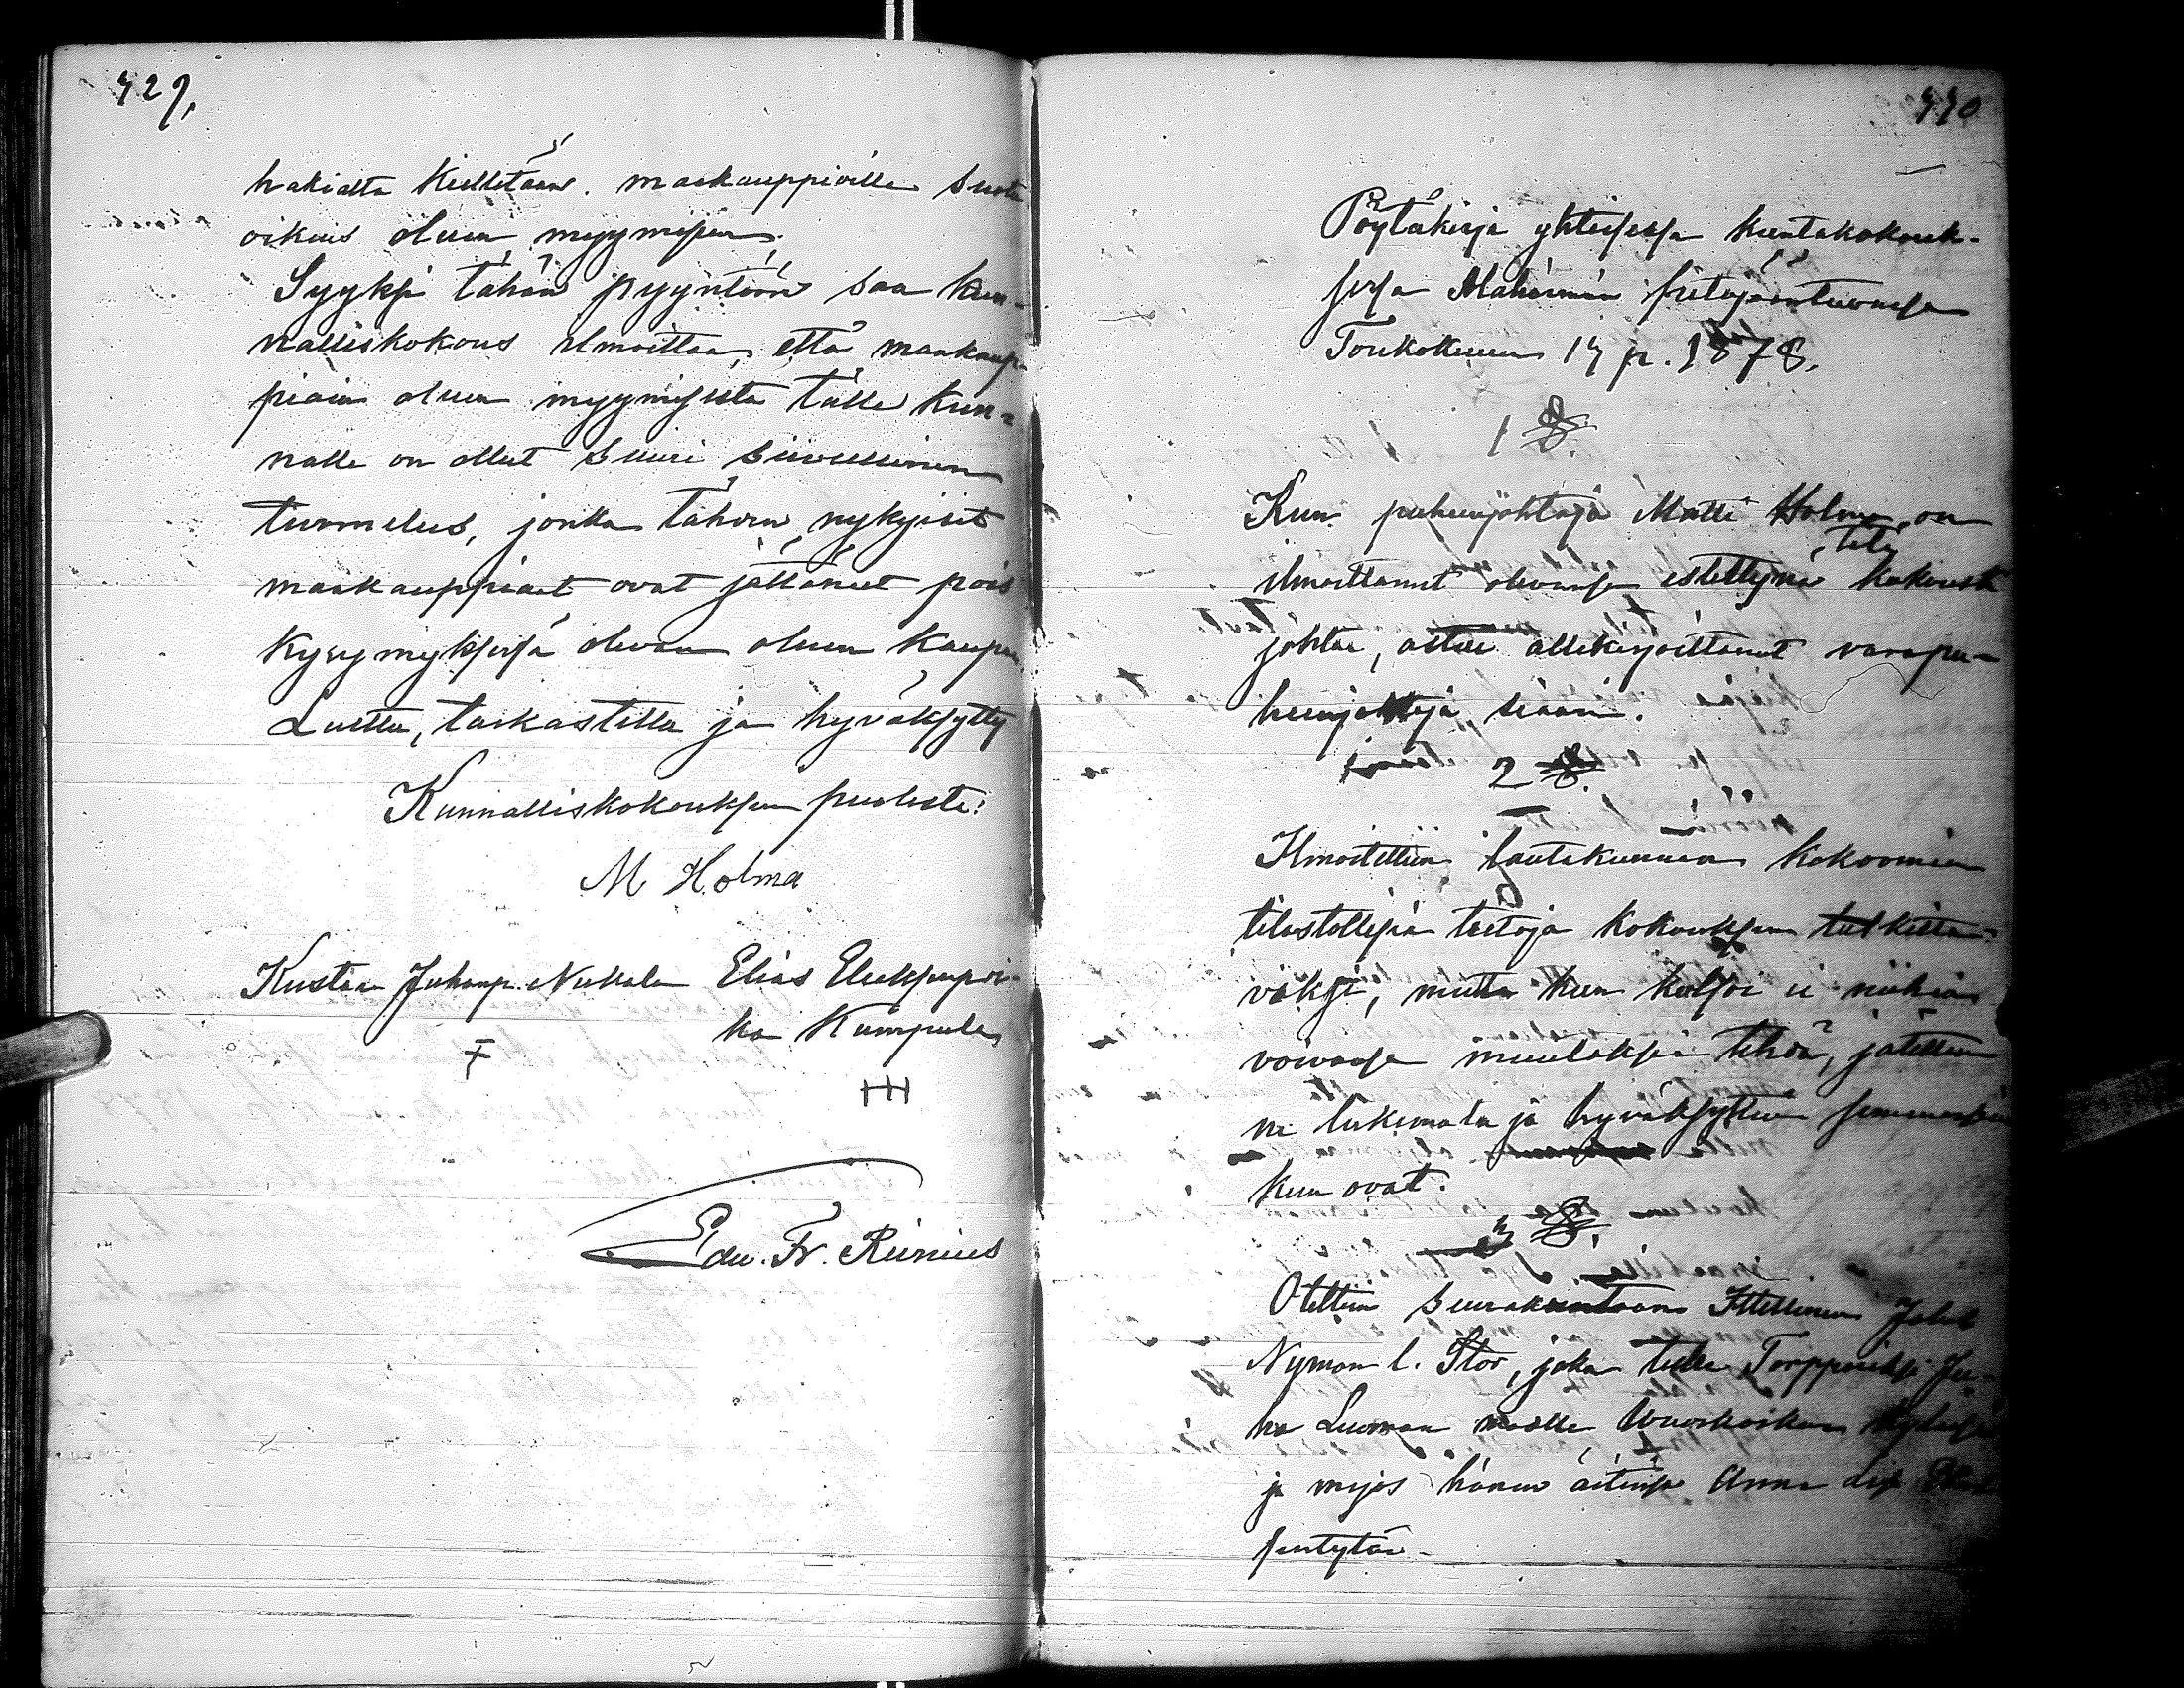 429.
hakialta kielletään. maakauppioille suotu
oikeus oluen myymiseen.
Syyksi tähän pyyntöön saa kun-
nalliskokous ilmoittaa, että maakaup-
piain oluen myymisestä tälle kun-
nalle on ollut suuri siivollinen
turmelus, jonka tähden nykyiset
maakauppiaat ovat jättäneet pois
kysymyksessä olevan oluen kaupan
Luettu, tarkastettu ja hyväksytty
Kunnalliskokouksen puolesta:
M Holma
Kustaa Juhanp. Nukala Elias Eliaksenpoi-
ka Kumpula
Edu. Fr. Riinius
430
Pöytäkirja yhteisessä kuntakokouk-
sessa pitäjääntuvassa
Toukokuun 14 p. 1878.
1 §.
Kun puheenjohtaja Matti Holma, on
ilmoittanut olevansa estettynä kokousta
johtaa, astui allekirjoittanut varapu-
heenjohtaja siaan.
2 §.
Ilmoitettiin lautakunnan kokoomia
tilastollisia tietoja kokouksen tutkitta-
viksi, mutta kun katsoi ei niihin
voivansa muutoksia tehdä, jätettiin
ne lukemata ja hyväksyttiin semmosina
kun ovat.
3 §.
Otettiin seurakuntaan Itsellinen
Nyman l. Stor, joka tulee Torppariksi Ju-
ha Luoman maalle kylässä
ja myös hänen äitinsä Anna
sentytär.